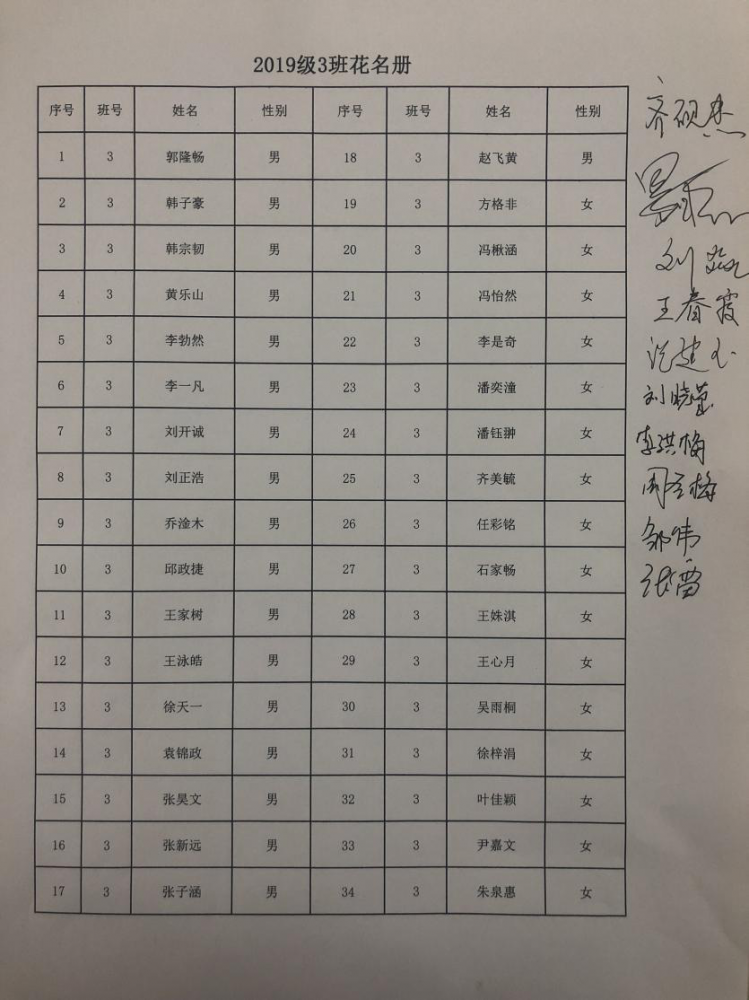 2019级3班花名册
序号 班号 姓名 性别 序号 班号 姓名 性别
1 3 郭隆畅 男 18 3 赵飞黄 男
2 3 韩子豪 男 19 3 方格非 女
3 3 韩宗韧 男 20 3 冯楸涵 女
4 3 黄乐山 男 21 3 冯怡然 女
5 3 李勃然 男 22 3 李是奇 女
6 3 李一凡 男 23 3 潘奕潼 女
7 3 刘开诚 男 24 3 潘钰翀 女
8 3 刘正浩 男 25 3 齐美毓 女
9 3 乔淦木 男 26 3 任彩铭 女
10 3 邱政捷 男 27 3 石家畅 女
11 3 王家树 男 28 3 王姝淇 女
12 3 王泳皓 男 29 3 王心月 女
13 3 徐天一 男 30 3 吴雨桐 女
14 3 袁锦政 男 31 3 徐梓涓 女
15 3 张昊文 男 32 3 叶佳颖 女
16 3 张新远 男 33 3 尹嘉文 女
17 3 张子涵 男 34 3 朱泉惠 女
齐砚杰
刘
王春霞
刘晓莹
李洪梅
邹伟
张雷